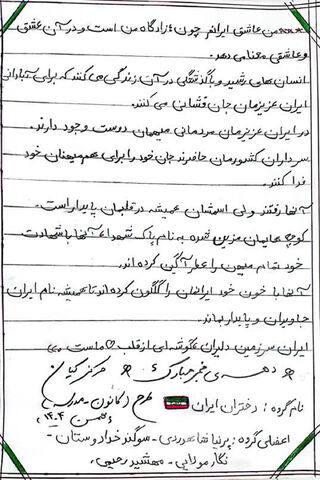 من عاشق ایرانم چون زادگاه من است و در آن عشق
و عاشقی معنا می دهد.
انسان های رشید و باگذشتگی در آن زندگی می کنند که برای آبادانی
ایران عزیزمان جان فشانی می کنند.
در ایران عزیزمان مردمانی میهمان دوست وجود دارند.
سرداران کشورمان حاضرند جان خود را برای هم میهنان خود
فدا کنند.
آنها رفتند ولی اسمشان همیشه در قلبمان پایدار است.
کوچه هایمان مزین شده به نام پاک شهدا، آنها با شهادت
خود تمام میهن را عطرآگین کرده اند.
آنها با خون خود ایرانمان را گلگون کرده اند تا همیشه نام ایران
جاویدان و پایدار بماند.
ایران سرزمین دلیران گوشه ای از قلب ماست
دهه ی فجر مبارک مرکز کیان
طرح (کانون - مدرسه)
نام گروه: دختران ایران
بهمن ۱۴۰۴
اعضای گروه: پرنیا شاهوردی - سوگند خدادوستان -
نگار مولایی - مهشید رحیمی